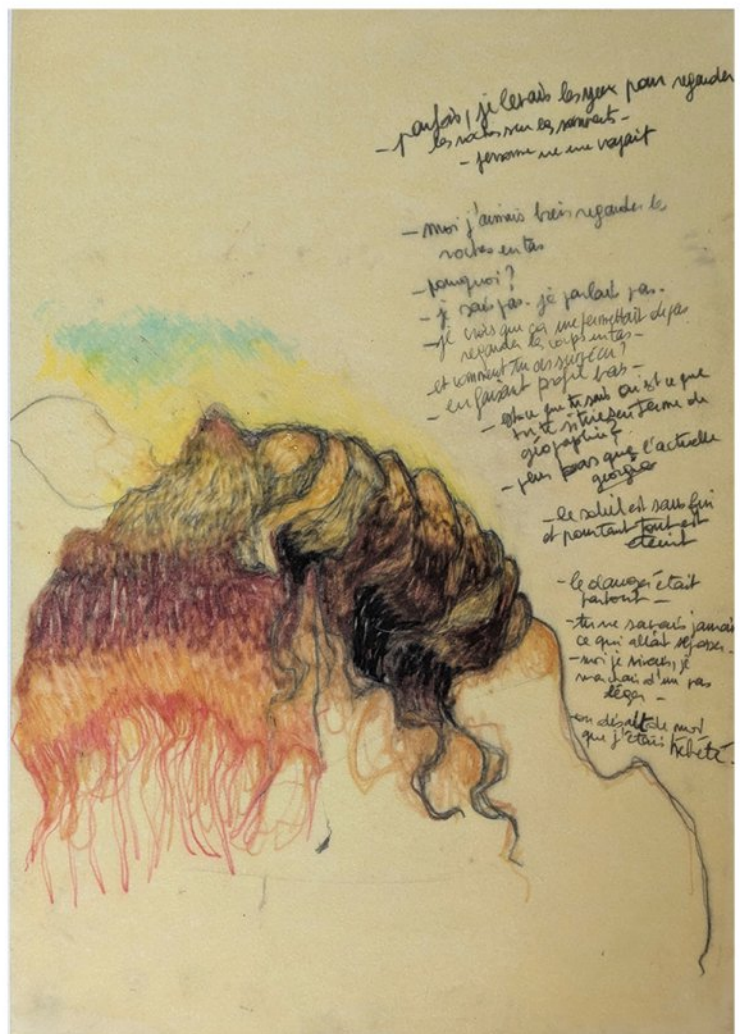 - parfois, je levais les yeux pour regarder
les roches sur les sommets -
- personne ne me voyait
- moi j'aimais bien regarder les
roches en tas
- pourquoi ?
- je sais pas. je parlais pas.
- je crois que ça me permettait de pas
regarder les corps en tas -
- et comment tu as survécu ?
- en faisant profil bas -
- est-ce que tu sais où est ce que
tu te situes en terme de
géographie ?
- plus bas que l'actuelle
géorgie
- le soleil est sans fin
et pourtant tout est
éteint
- le danger était
partout -
- tu ne savais jamais
ce qui allait se passer -
- moi je vivais, je
marchais d'un pas
léger -
- on disait de moi
que j'étais hébété.